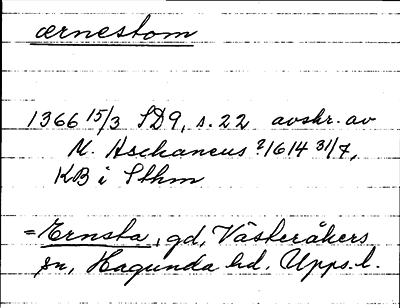 ærnestom
1366 15/3 SD9, s. 22 avskr. av
M. Aschaneus 2/6 14 31/7,
KB i Sthm
= Ernsta, gd, Västeråkers
sn, Hagunda hd. Upps. l.